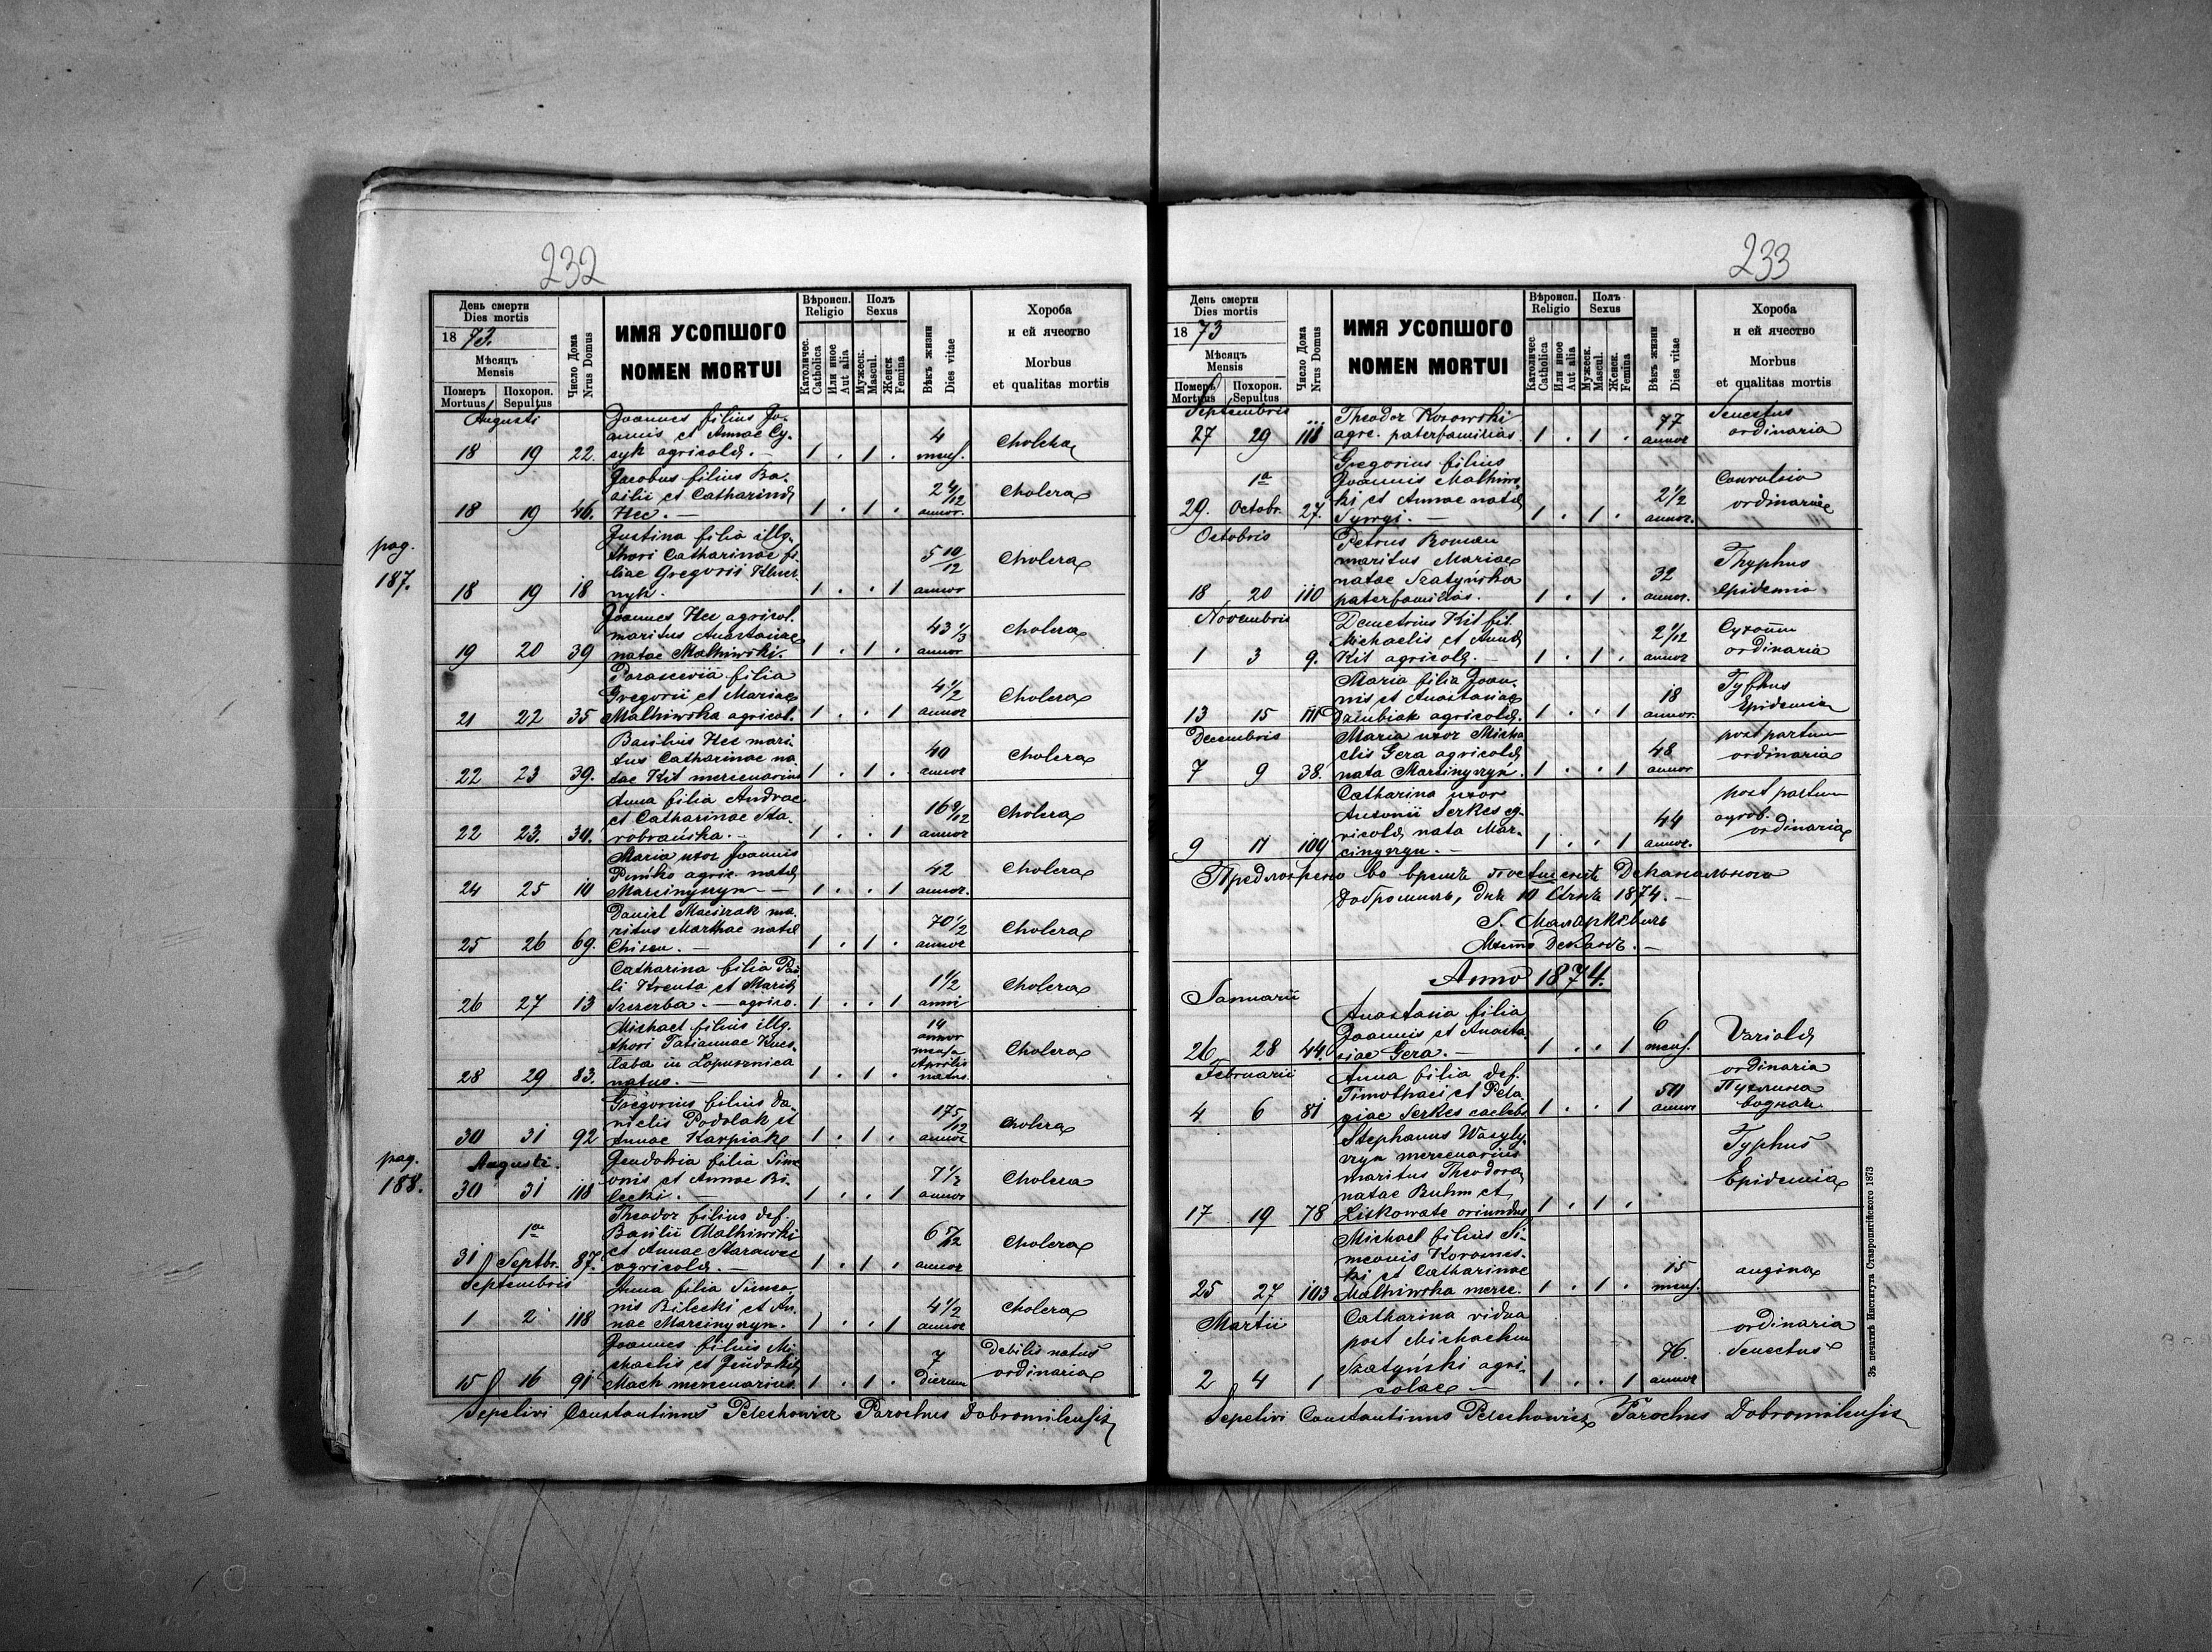 232
День смерти
Dies mortis
1873.
Мѣсяцъ
Mensis
Померъ
Mortuus
Похорон.
Sepultus
Число Дома
Nrus Domus
ИМЯ УСОПШОГО
NOMEN MORTUI
Вѣроисп.
Religio
Католичес.
Catholica
Или иное
Aut alia
Полъ
Sexus
Мужеск.
Mascul.
Женск
Femina
Вѣкъ жизни
Dies vitae
Хороба
и ей ячество
Morbus
et qualitas mortis
Augusti
Joannes filius Jo-
annis et Annae Cy-
18 19 22. syk agricola. — 1 . 1 . 4 mens. Cholera
Jacobus filius Ba-
silii et Catharina
18 19 46. Hec. — 1 . 1 . 2 4/12 annor. Cholera
pag.
187.
Justina filia illg.
thori Catharinae fi-
liae Gregorii
18 19 18 1 . . 1 5 10/12 annor Cholera
Joannes Hec agricol.
maritus Anastasiae
19 20 39 natae Malhiwski. 1 . 1 . 43 1/3 annor Cholera
Parascevia filia
Gregorii et Mariae
21 22 35 Malhiwska agricol. 1 . . 1 4 1/2 annor Cholera
Basilius Hec mari-
tus Catharinae na-
22 23 39. tae Kit mercenarius 1 . 1 . 40 annor Cholera
Anna filia Andreae
et Catharinae Sta-
22 23. 34. robrańska. — 1 . . 1 16 9/12 annor Cholera
Maria uxor Joannis
agric. nata
24 25 10 Marcinyszyn — 1 . . 1 42 annor. Cholera
Daniel Maciszak ma-
ritus Marthae nata
25 26 69. — 1 . 1 . 70 1/2 annor Cholera
Catharina filia Pau-
li Krenta et Maria
26 27 13 Szczerba. — agrico. 1 . . 1 1 1/2 anni Cholera
Michael filius illg.
thori Tatiannae
in Lopusznica
28 29 83. natus. — 1 . 1 . 14 annor mense Aprilis natus. Cholera
Gregorius filius Da-
nielis Podolak et
30 31 92 Annae Karpiak 1 . 1 . 17 5/12 annor Cholera
pag.
188.
Augusti.
Eudokia filia Sime-
onis et Annae Bi-
30 31 118 lecki. — 1 . . 1 7 1/2 annor Cholera
Theodor filius def.
Basilii Malhiwski
et Annae Starawec
31 1a Septbr. 87. agricola. — 1 . 1 . 6 5/12 annor Cholera
Septembris
Anna filia Simeo-
nis Bilecki et An-
1 2 118 nae Marcinyszyn. 1 . . 1 4 1/2 annor Cholera
Joannes filius Mi-
chaelis et Eudokia
15 16 91 Mach mercenarius 1 . 1 . 7 dierum Debilis natus ordinaria
Sepelivi Constantinus Pelechowicz Parochus Dobromilensis
233
День смерти
Dies mortis
1873
Мѣсяцъ
Mensis
Померъ
Mortuus
Похорон.
Sepultus
Число Дома
Nrus Domus
ИМЯ УСОПШОГО
NOMEN MORTUI
Вѣроисп.
Religio
Католичес
Catholica
Или иное
Aut alia
Полъ
Sexus
Мужеск.
Mascul.
Женск.
Femina
Вѣкъ жизни
Dies vitae
Хороба
и ей ячество
Morbus
et qualitas mortis
Septembris
Theodor Kosowski
27 29 111 agric. paterfamilias. 1 . 1 . 77 annor Senectus ordinaria
Gregorius filius
Joannis Malhiws-
ki et Annae nata
29. 1a Octobr. 27. — 1 . 1 . 2 1/2 annor. Convulsio ordinariae
Octobris
Petrus Roman
maritus Mariae
natae Szatyńska
18 20 110 paterfamilias. 1 . 1 . 32 annor. Thyphus epidemia
Novembris
Demetrius Kit fil.
Michaelis et Anna
1 3 9. Kit agricola. — 1 . 1 . 2 1/12 annor ordinaria
Maria filia Joan-
nis et Anastasiae
13 15 111 agricola. 1 . . 1 18 annor. Tyfhus Epidemia
Decembris
Maria uxor Micha
elis Gera agricola
7 9 38. nata Marcinyszyn. 1 . . 1 48 annor post partum ordinaria
Catharina uxor
Antonii Serkes ag-
ricola nata Mar-
9 11 109 cinyszyn. — 1 . . 1 44 annor. post partum ordinaria
Предложено во время Деканального
Добромиль, дня 10 1874. —
Деканъ. —
Anno 1874.
Januarii
Anastasia filia
Joannis et Anasta
26 28 44. siae Gera. — 1 . . 1 6 mens. Variola ordinaria
Februarii
Anna filia def.
Timothaei et Pela-
4 6 81 giae Serkes caelebs 1 . . 1 50 annor Пухлина водная
Stephanus Wasyly-
szyn mercenarius
maritus Theodora
natae Buhm et
17 19 78 Liskowate oriundus 1 . 1 . Typhus Epidemia
Michael filius Si-
meonis
et Catharinae
25 27 103 Malhiwska merc. 1 . 1 . 15 mens. angina
Martii
Catharina vidua
post Michaelem
Szatyński agri-
2 4 1 colae — 1 . . 1 76. annor ordinaria Senectus
Sepelivi Constantinus Pelechowicz Parochus Dobromilensis
Зъ печатнѣ Института Ставропигійского 1873